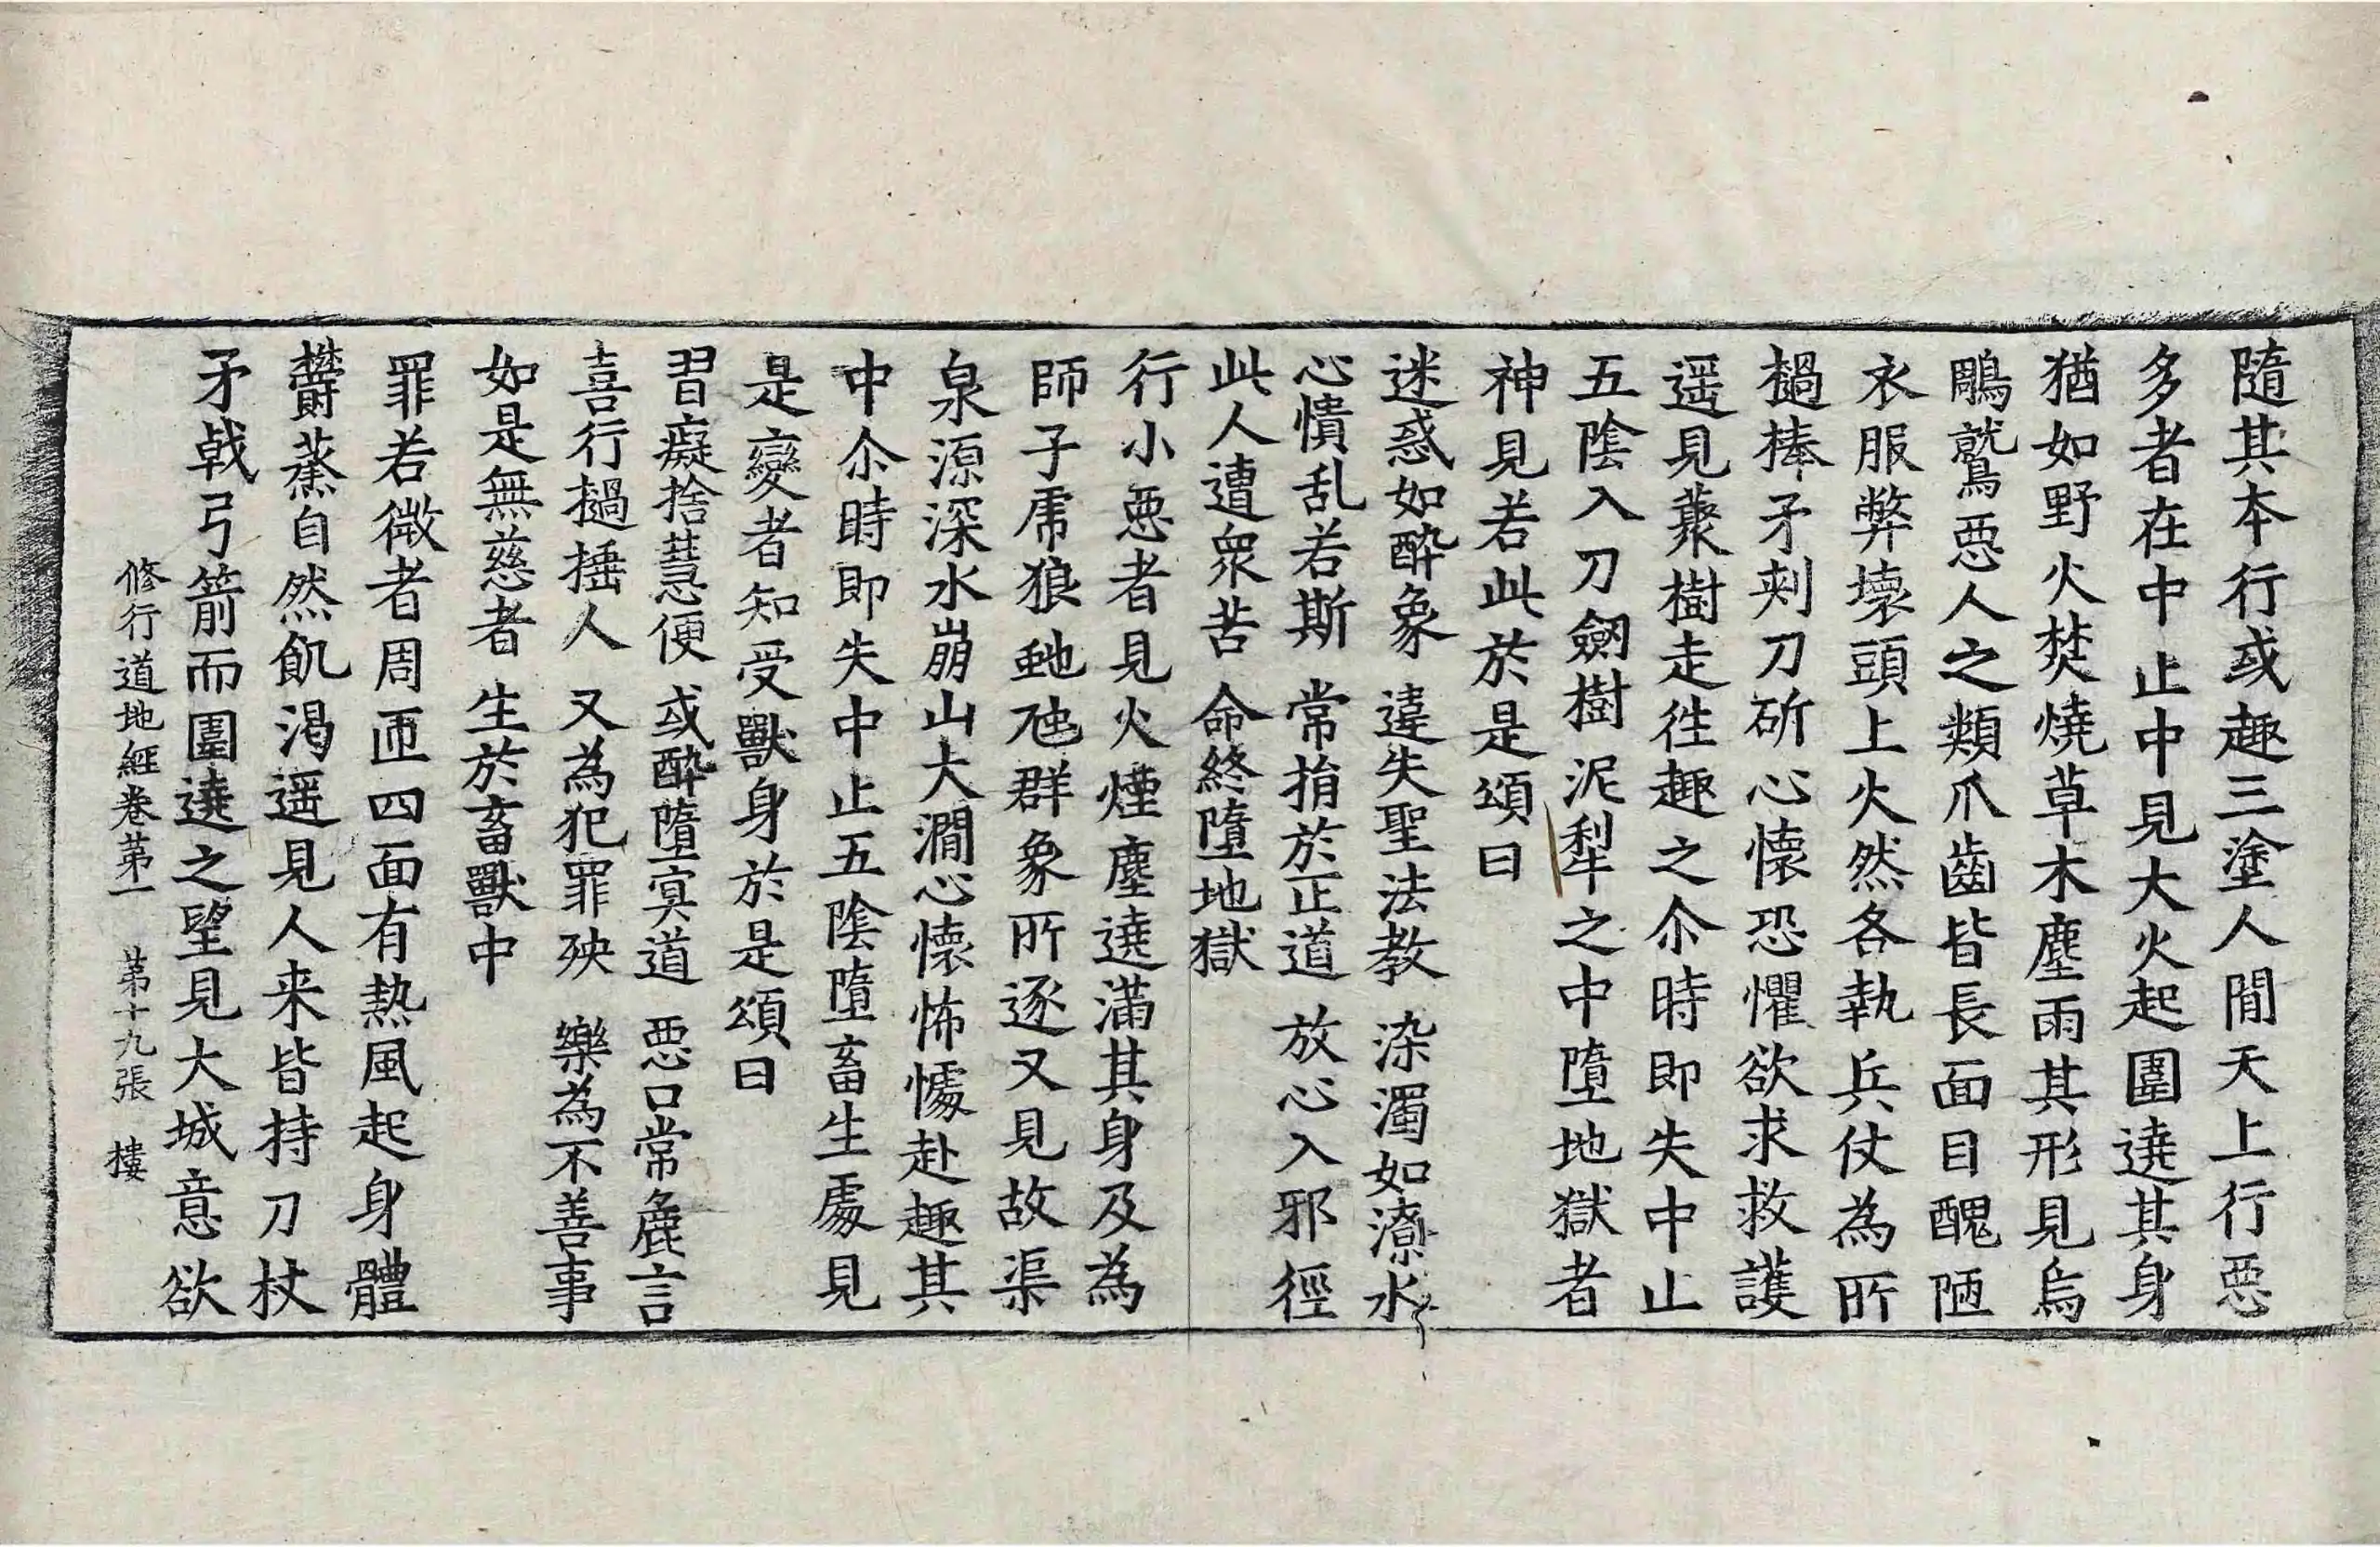 隨其本行或趣三塗人間天上行惡
多者在中止中見大火起圍遶其身
猶如野火焚燒草木塵雨其形見烏
鵰鷲惡人之類爪齒皆長面目醜陋
衣服弊壞頭上火然各執兵仗為所
檛棒矛刾刀斫心懷恐懼欲求救護
遥見藂樹走往趣之尒時即失中止
五陰入刀劒樹泥犁之中墮地獄者
神見若此於是頌曰
迷惑如醉象 違失聖法教 染濁如潦水
心憒乱若斯 常捐於正道 放心入邪徑
此人遭衆苦 命終墮地獄
行小惡者見火煙塵遶滿其身及為
師子虎狼虵虺群象所逐又見故渠
泉源深水崩山大澗心懷怖懅赴趣其
中尒時即失中止五陰墮畜生處見
是變者知受獸身於是頌曰
習癡捨慧便 或醉墮寞道 惡口常麁言
喜行檛捶人 又為犯罪殃 樂為不善事
如是無慈者 生於畜獸中
罪若微者周匝四面有熱風起身體
欝蒸自然飢渴遥見人来皆持刀杖
矛戟弓箭而圍遶之望見大城意欲
修行道地経卷苐一 苐十九張 樓